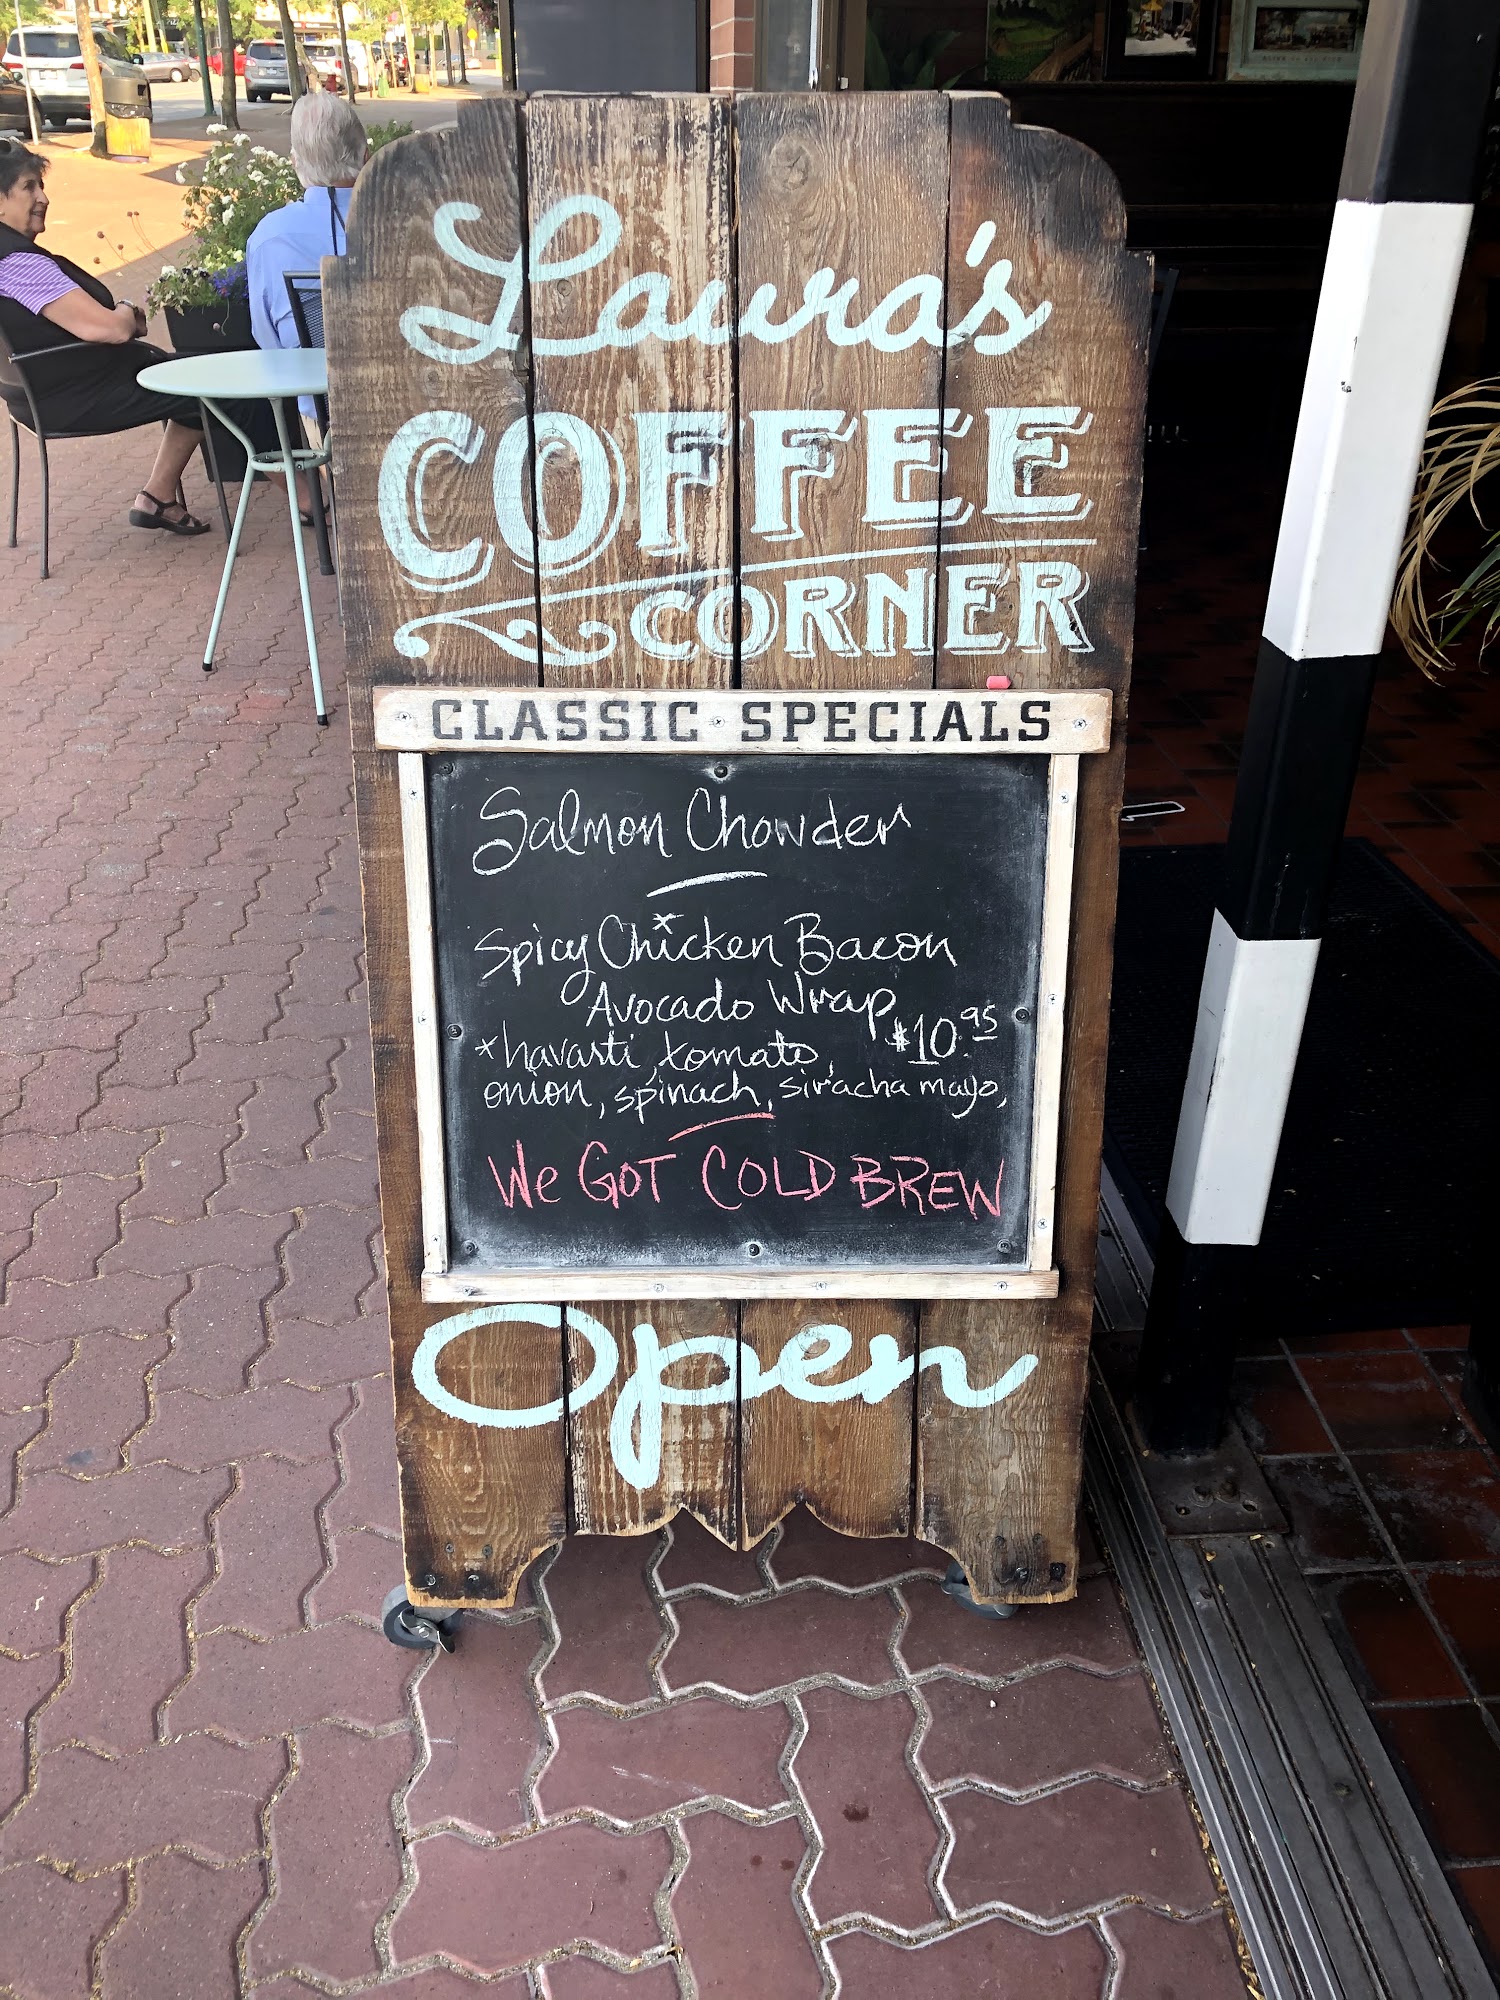 Laura's
COFFEE
CORNER
CLASSIC SPECIALS
Salmon Chowder
Spicy Chicken Bacon
Avocado Wrap
$10.95
*havarti, tomato,
onion, spinach, siracha mayo,
We GOT COLD BREW
Open